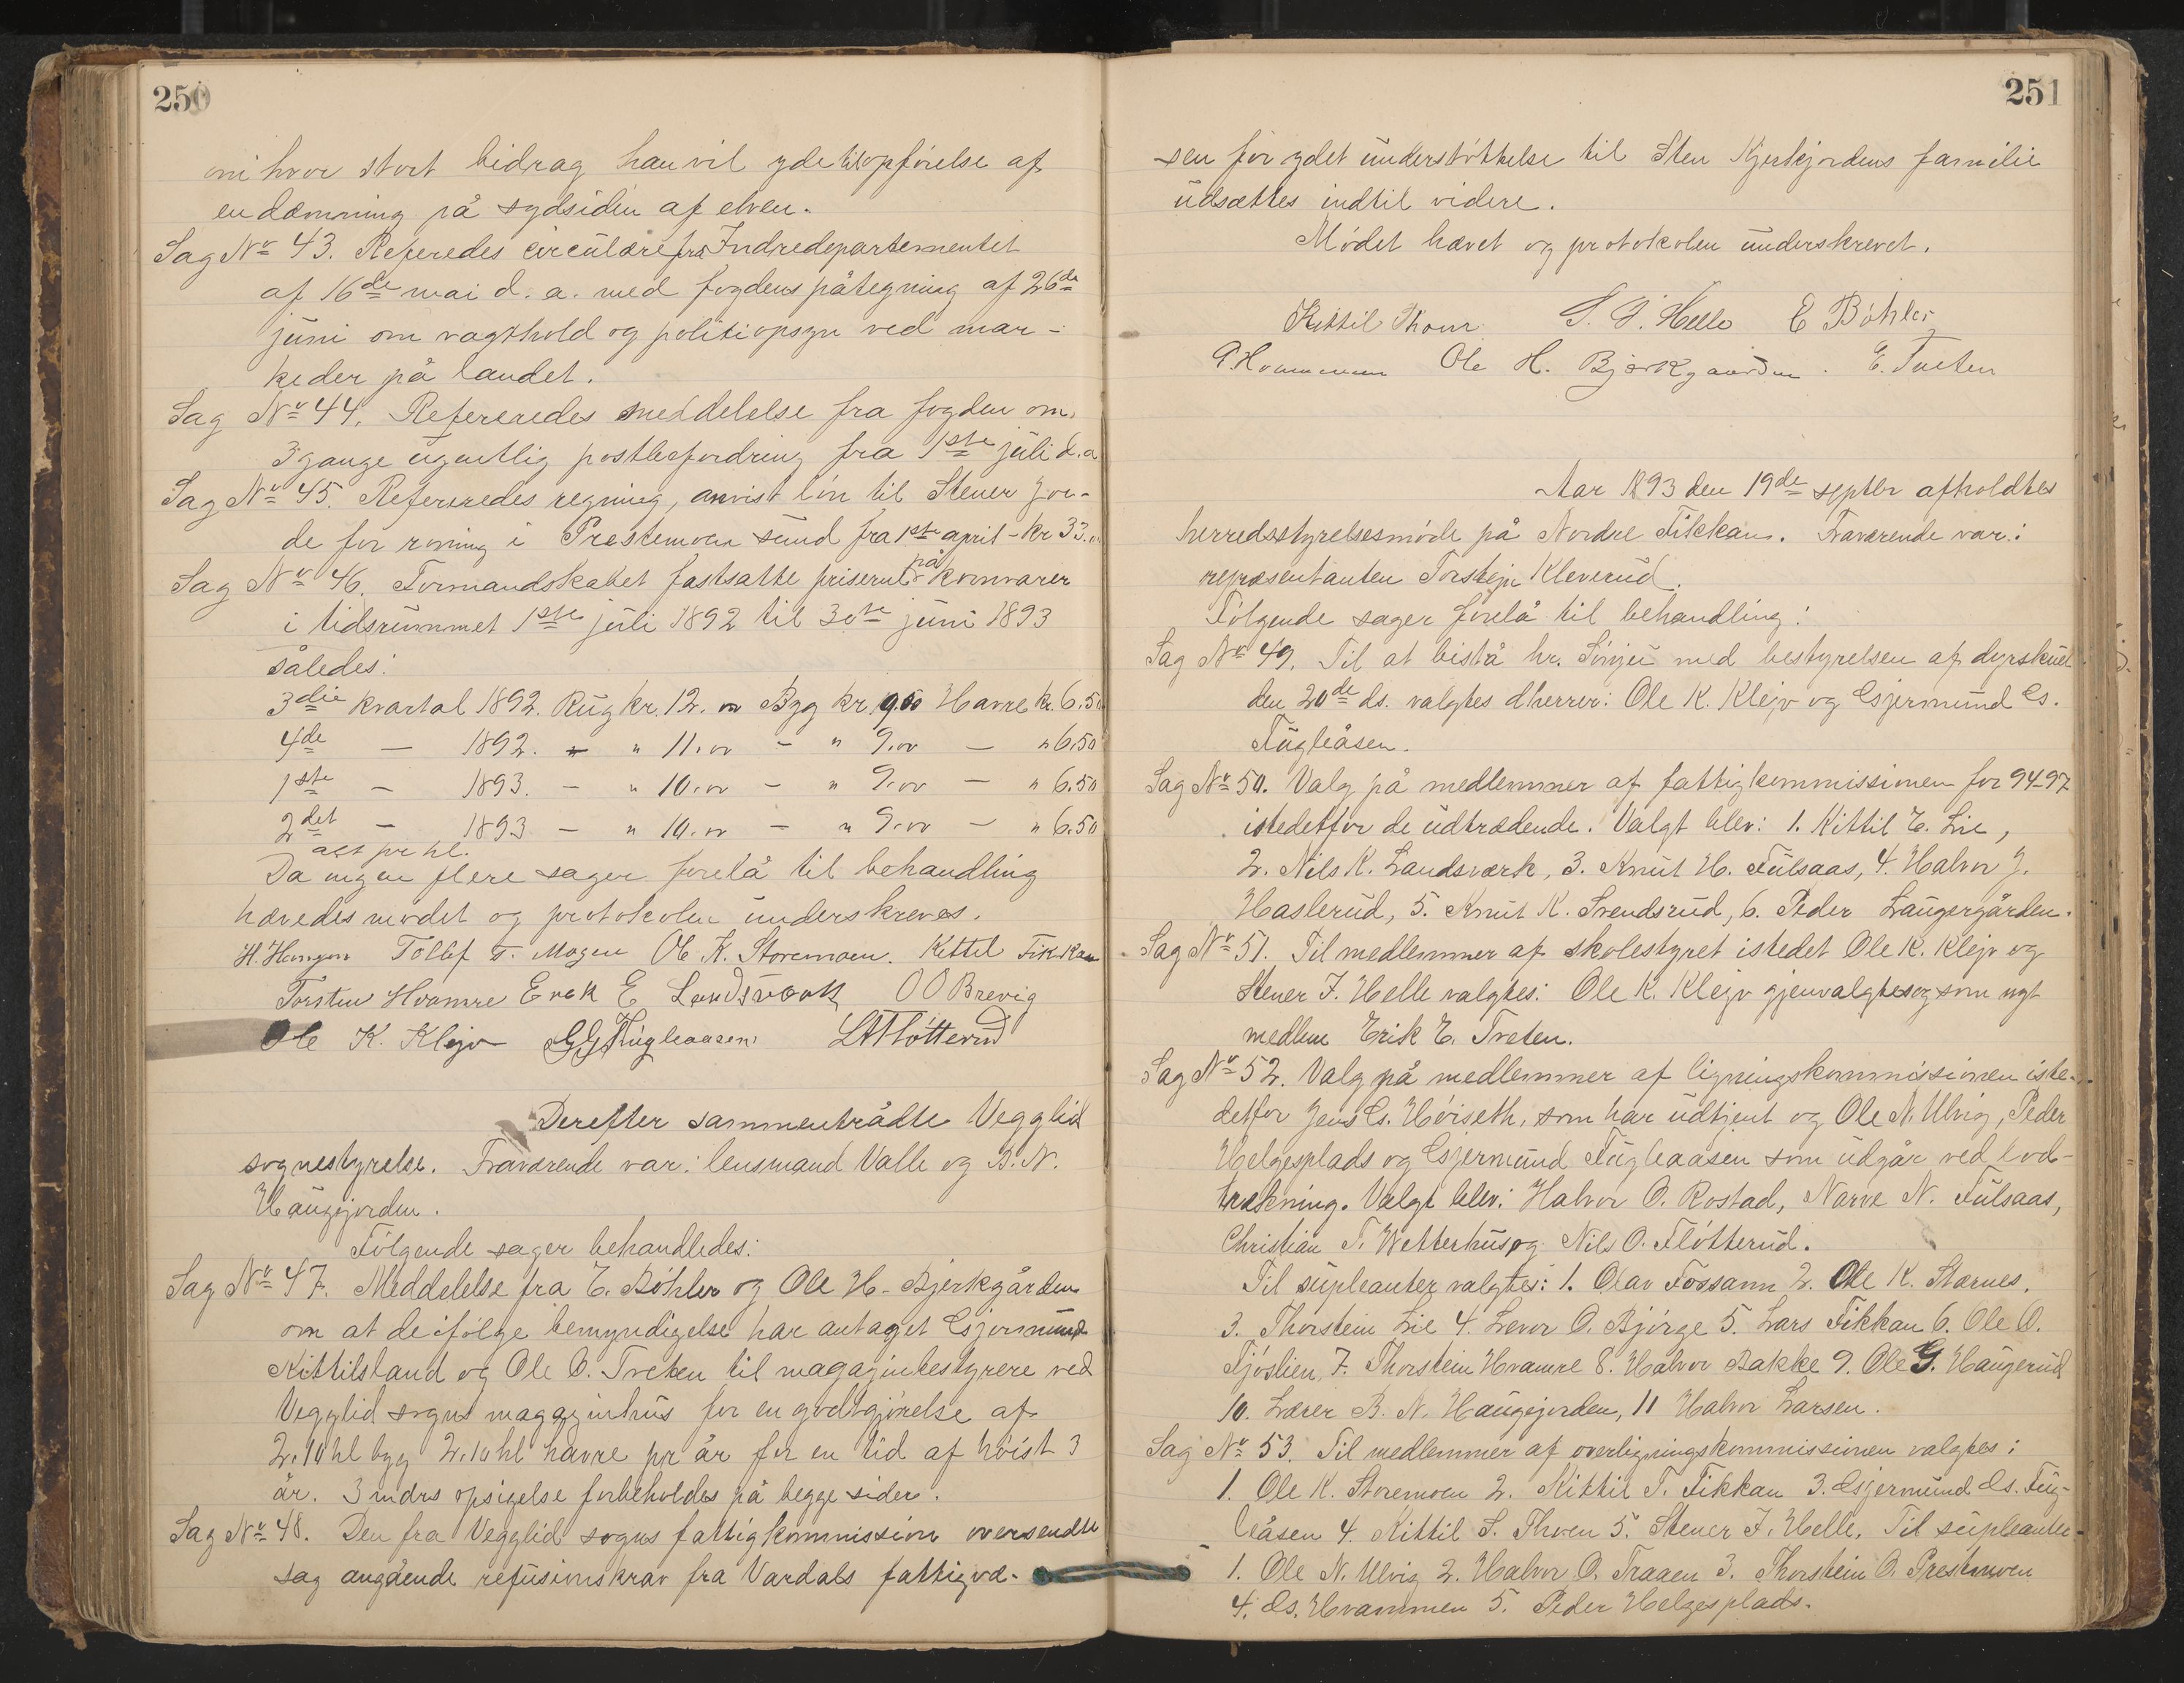 250
om hvor stort bidrag han vil yde til opførelse af
en dæmning på sydsiden af elven.
Sag No 43. Referedes circulære fra Indredepartementet
af 16de mai d. a. med fogdens påtegning af 26de
juni om vagthold og politiopsyn ved mar-
keder på landet.
Sag No 44. Refereredes meddelelse fra fogden om
3 gange ugentlig postbefordring fra 1ste juli d. a
Sag No 45. Refereredes regning, anvist løn til Stener Jor-
de for roning i Prestemoen sund fra 1ste april - kr 33.
Sag No 46. Formandskabet fastsatte priserne på kornvarer
i tidsrummet 1ste juli 1892 til 30te juni 1893
således:
3die kvartal 1892. Rug kr. 12.00 Byg kr. 9.50 Havre kr. 6.50
4de — 1892. - " 11.00 - " 9.00 — " 6.50
1ste — 1893. - " 10.00 - " 9.00 — " 6.50
2det — 1893 - " 10.00 - " 9.00 — " 6.50
alt pr hl.
Da ingen flere sager forelå til behandling
hævedes mødet og protokolen underskreves.
Tollef T. Mogen Ole K. Storemoen. Kittil Fikkan
Torsten Hvamre Erek E Landsverk O O Brevig
Ole K. Klejv G G Fugleaasen Fløtterud
Derefter sammentrådte Vegglid
sognestyrelse. Fraværende var: lensmand Valle og B. N.
Haugejorden.
Følgende sager behandledes:
Sag No 47. Meddelelse fra E. Bøhler og Ole H. Bjerkgården
om at de ifølge bemyndigelse har antaget Gjermund
Kittilsland og Ole O. Treten til magazinbestyrere ved
Vegglid sogns magazinhus for en godtgjørelse af
2.10 hl byg 2.10 hl havre pr år for en tid af høist 3
år. 3 mdrs opsigelse forbeholdes på begge sider.
Sag No 48. Den fra Vegglid sogns fattigkommission oversendte
sag angående refusionskrav fra Vardals fattigvæ-
251
sen for ydet understøttelse til Sten Kjerkjordens familie
udsættes indtil videre.
Mødet hævet og protokolen underskrevet.
Kittil Thoen S. J. Helle E Bøhler
Ole H. Bjørkgaarden. E. Treten
Aar 1893 den 19de septbr afholdtes
herredsstyrelsesmøde på Nordre Fikkan. Fraværende var:
repræsentanten Torstejn Kleverud.
Følgende sager forelå til behandling:
Sag No 49. Til at bistå hr. Sinjei med bestyrelsen af dyrskuet
den 20de ds. valgtes dherrer: Ole K. Klejv og Gjermund Gs.
Fugleåsen.
Sag No 50. Valg på medlemmer af fattigkommissionen for 94-97
istedetfor de udtrædende. Valgt blev: 1. Kittil E. Lie,
2. Nils K. Landsværk, 3. Knut H. Fulsaas, 4. Halvor J.
Haslerud, 5. Knut K. Svendsrud, 6. Peder Laugergården.
Sag No 51. Til medlemmer af skolestyret istedet Ole K. Klejv og
Stener J. Helle valgtes: Ole K. Klejv gjenvalgtes og som nyt
medlem Erik E. Treten.
Sag No 52. Valg på medlemmer af ligningskommissionen iste-
detfor Jens Gs. Høiseth, som har udtjent og Ole N. Ulvig, Peder
Helgesplads og Gjermund Fugleaasen som udgår ved lod-
trækning. Valgt blev: Halvor O. Rostad, Narve N. Fulsaas,
Christian T. Wetterhus og Nils O. Fløtterud.
Til supleanter valgtes: 1. Olav Fossann 2. Ole K. Stærnes.
3. Thorstein Lie 4. Levor O. Bjørge 5. Lars Fikkan 6. Ole O.
Fjøslien, 7. Thorstein Hvamre 8. Halvor Bakke 9. Ole G. Haugerud
10. Lærer B. N. Haugejorden, 11 Halvor Larsen.
Sag No 53. Til medlemmer af overligningskommissionen valgtes:
1. Ole K. Storemoen 2. Kittil T. Fikkan 3. Gjermund Gs. Fug-
leåsen 4. Kittil S. Thoen 5. Stener J. Helle. Til supleanter-
1. Ole N. Ulvig 2. Halvor O. Traaen 3. Thorstein O. Prestmoen
4. Gs. Hvammen 5. Peder Helgesplads.